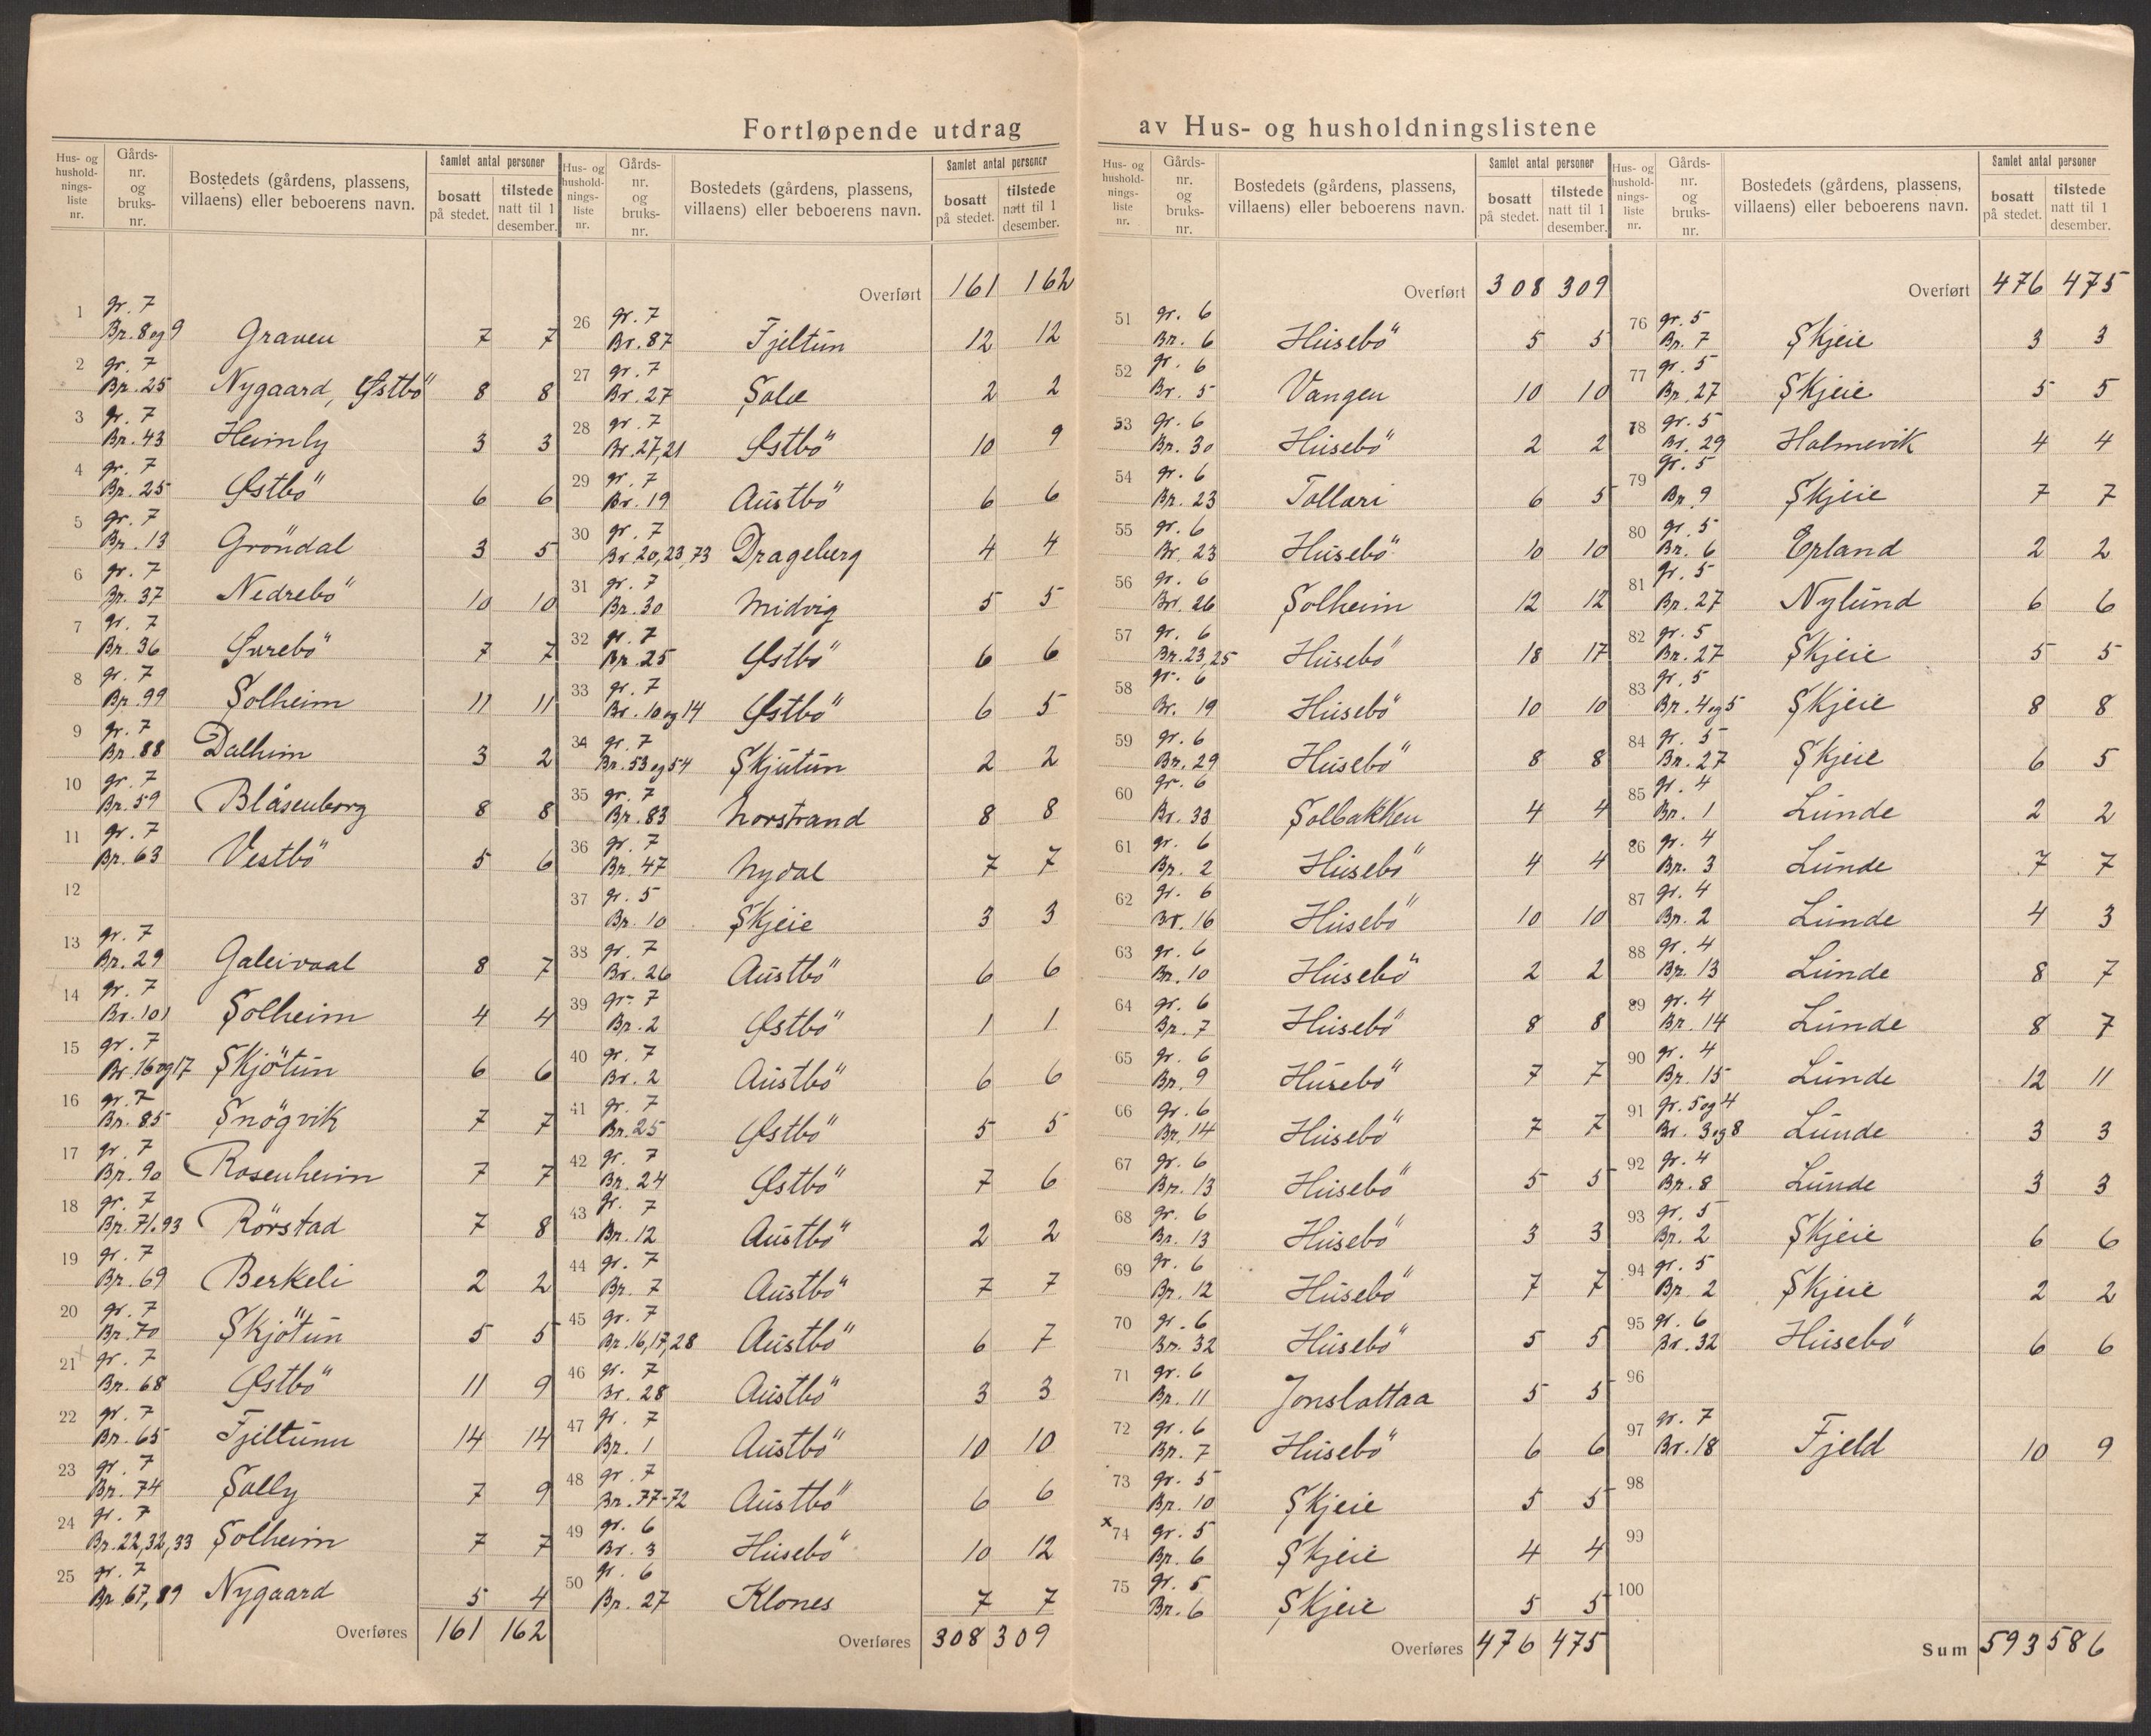 Fortløpende utdrag av Hus- og husholdningslistene
Hus- og hushold-nings-liste nr. Gårds-nr. og bruks-nr. Bostedets (gårdens, plassens, villaens) eller beboerens navn. Samlet antal personer bosatt på stedet. tilstede natt til 1 desember.
1 gr. 7 Br. 8 og 9 Graven 7 7
2 gr. 7 Br. 25 Nygaard, Østbö 8 8
3 gr. 7 Br. 43 Heimly 3 3
4 gr. 7 Br. 25 Østbö 6 6
5 gr. 7 Br. 13 Gröndal 3 5
6 gr. 7 Br. 37 Nedrebö 10 10
7 gr. 7 Br. 36 Øvrebö 7 7
8 gr. 7 Br. 99 Solheim 11 11
9 gr. 7 Br. 88 Dalheim 3 2
10 gr. 7 Br. 59 Blåsenborg 8 8
11 gr. 7 Br. 63 Vestbö 5 6
12
13 gr. 7 Br. 29 Galeivaal 8 7
14 gr. 7 Br. 101 Solheim 4 4
15 gr. 7 Br. 16 og 17 Skjötun 6 6
16 gr. 7 Br. 85 Snögvik 7 7
17 gr. 7 Br. 90 Rosenheim 7 7
18 gr. 7 Br. 71.93 Rörstad 7 8
19 gr. 7 Br. 69 Berkeli 2 2
20 gr. 7 Br. 70 Skjötun 5 5
21 gr. 7 Br. 68 Østbö 11 9
22 gr. 7 Br. 65 Fjeltunn 14 14
23 gr. 7 Br. 74 Solly 7 9
24 gr. 7 Br. 22,32,33 Solheim 7 7
25 gr. 7 Br 67,89 Nygaard 5 4
Overføres 161 162
Hus- og hushold-nings-liste nr. Gårds-nr. og bruks-nr. Bostedets (gårdens, plassens, villaens) eller beboerens navn. Samlet antal personer bosatt på stedet. tilstede natt til 1 desember.
Overført 161 162
26 gr. 7 Br. 87 Fjeltun 12 12
27 gr. 7 Br. 27 Sole 2 2
28 gr. 7 Br. 27,21 Østbö 10 9
29 gr. 7 Br. 19 Austbö 6 6
30 gr. 7 Br. 20,23,73 Drageberg 4 4
31 gr. 7 Br. 30 Midvig 5 5
32 gr. 7 Br. 25 Østbö 6 6
33 gr. 7 Br. 10 og 14 Østbö 6 5
34 gr. 7 Br. 53 og 54 Skjutun 2 2
35 gr. 7 Br. 83 Norstrand 8 8
36 gr. 7 Br. 47 Nydal 7 7
37 gr. 5 Br. 10 Skjeie 3 3
38 gr. 7 Br. 26 Austbö 6 6
39 gr. 7 Br. 2 Østbö 1 1
40 gr. 7 Br. 2 Austbö 6 6
41 gr. 7 Br. 25 Østbö 5 5
42 gr. 7 Br. 24 Østbö 7 6
43 gr. 7 Br. 12 Austbö 2 2
44 gr. 7 Br. 7 Austbö 7 7
45 gr. 7 Br. 16,17,28 Austbö 6 7
46 gr. 7 Br. 28 Austbö 3 3
47 gr. 7 Br. 1 Austbö 10 10
48 gr. 7 Br. 77-72 Austbö 6 6
49 gr. 6 Br. 3 Husebö 10 12
50 gr. 6 Br. 27 Klones 7 7
Overføres 308 309
Hus- og hushold-nings-liste nr. Gårds-nr. og bruks-nr. Bostedets (gårdens, plassens, villaens) eller beboerens navn. Samlet antal personer bosatt på stedet. tilstede natt til 1 desember.
Overført 308 309
51 gr. 6 Br. 6 Husebö 5 5
52 gr. 6 Br. 5 Vangen 10 10
53 gr. 6 Br. 30 Husebö 2 2
54 gr. 6 Br. 23 Tollari 6 5
55 gr. 6 Br. 23 Husebö 10 10
56 gr. 6 Br. 26 Solheim 12 12
57 gr. 6 Br. 23,25 Husebö 18 17
58 gr. 6 Br. 19 Husebö 10 10
59 gr. 6 Br. 29 Husebö 8 8
60 gr. 6 Br. 33 Solbakken 4 4
61 gr. 6 Br. 2 Husebö 4 4
62 gr. 6 Br. 16 Husebö 10 10
63 gr. 6 Br. 10 Husebö 2 2
64 gr. 6 Br. 7 Husebö 8 8
65 gr. 6 Br. 9 Husebö 7 7
66 gr. 6 Br. 14 Husebö 7 7
67 gr. 6 Br. 13 Husebö 5 5
68 gr. 6 Br. 13 Husebö 3 3
69 gr. 6 Br. 12 Husebö 7 7
70 gr. 6 Br. 32 Husebö 5 5
71 gr. 6 Br. 11 Jonslattaa 5 5
72 gr. 6 Br. 7 Husebö 6 6
73 gr. 5 Br. 10 Skjeie 5 5
x 74 gr. 5 Br. 6 Skjeie 4 4
75 gr. 5 Br. 6 Skjeie 5 5
Overføres 476 475
Hus- og hushold-nings-liste nr. Gårds-nr. og bruks-nr. Bostedets (gårdens, plassens, villaens) eller beboerens navn. Samlet antal personer bosatt på stedet. tilstede natt til 1 desember.
Overført 476 475
76 gr. 5 Br. 7 Skjeie 3 3
77 gr. 5 Br. 27 Skjeie 5 5
78 gr. 5 Br. 29 Holmevik 4 4
79 gr. 5 Br. 9 Skjeie 7 7
80 gr. 5 Br. 6 Erland 2 2
81 gr. 5 Br. 27 Nylund 6 6
82 gr. 5 Br. 27 Skjeie 5 5
83 gr. 5 Br. 4 og 5 Skjeie 8 8
84 gr. 5 Br. 27 Skjeie 6 5
85 gr. 4 Br. 1 Lunde 2 2
86 gr. 4 Br. 3 Lunde 7 7
87 gr. 4 Br. 2 Lunde 4 3
88 gr. 4 Br. 13 Lunde 8 7
89 gr. 4 Br. 14 Lunde 8 7
90 gr. 4 Br. 15 Lunde 12 11
91 gr. 5 og 4 Br. 3 og 8 Lunde 3 3
92 gr. 4 Br. 8 Lunde 3 3
93 gr. 5 Br. 2 Skjeie 6 6
94 gr. 5 Br. 2 Skjeie 2 2
95 gr. 6 Br. 32 Husebö 6 6
96
97 gr. 7 Br. 18 Fjeld 10 9
98
99
100
Sum 593 586